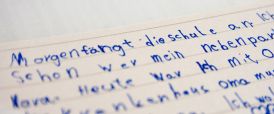 Morgen fängt die schule an. Ich
schon wer mein nebenpar
Nora. Heute war Ich mit. O
krankenhaus oma mu
Ich wol